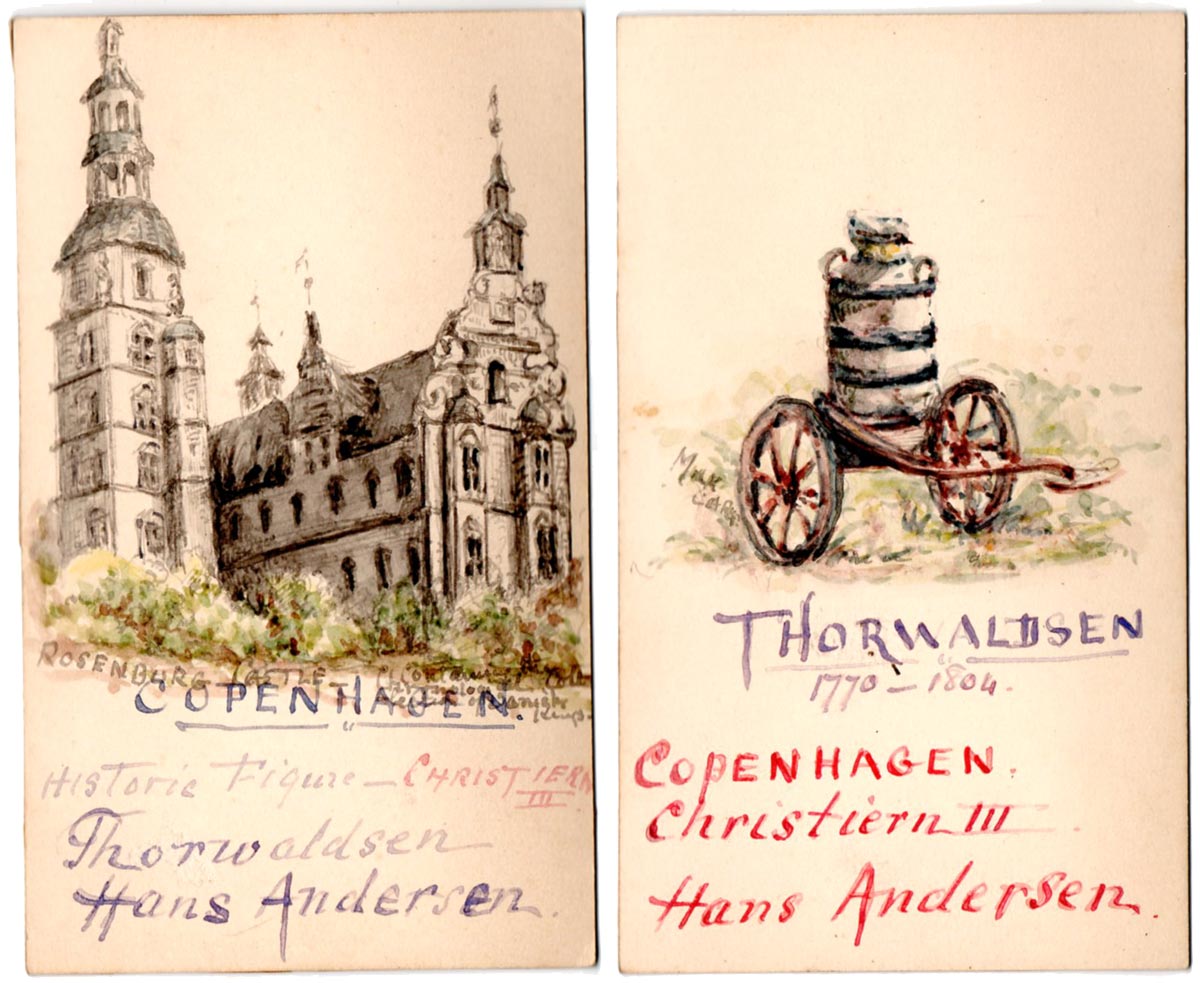 ROSENBURG CASTLE
COPENHAGEN.
Historic Figure — CHRISTIERN
III
Thorwaldsen
Hans Andersen.
MILK
CART
THORWALDSEN
1770 — 1804.
COPENHAGEN.
Christiern III
Hans Andersen.